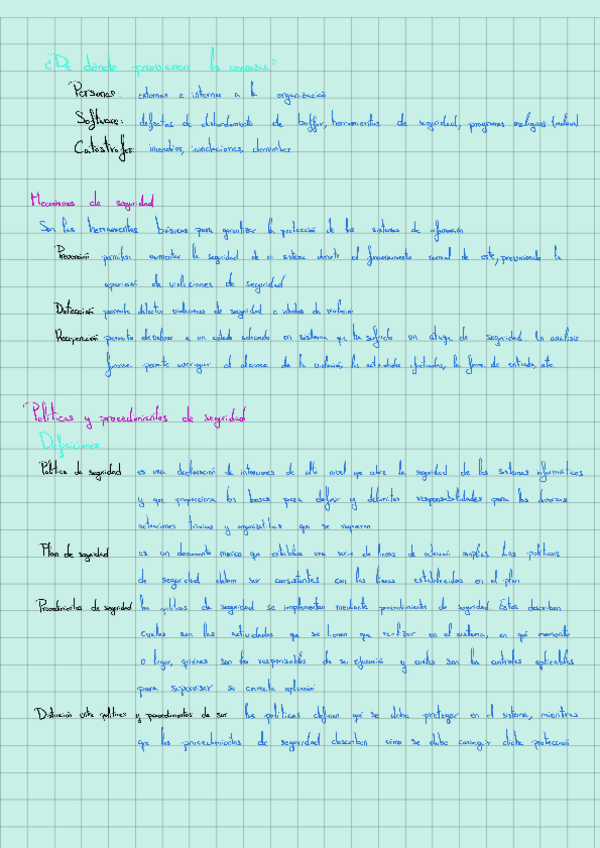 ¿De dónde provienen las amenazas?
Personas: externas e internas a la organización
Software: defectos de desbordamiento de buffer, herramientas de seguridad, programas malignos (malware)
Catástrofes: incendios, inundaciones, derrumbes
Mecanismos de seguridad
Son las herramientas básicas para garantizar la protección de los sistemas de información
Prevención permiten aumentar la seguridad de un sistema durante el funcionamiento normal de este, previniendo la
aparición de violaciones de seguridad
Detección permite detectar violaciones de seguridad o intentos de violación
Recuperación permite devolver a un estado adecuado un sistema que ha sufrido un ataque de seguridad. Un análisis
forense permite averiguar el alcance de la violación, las actividades efectuadas, la forma de entrada, etc.
Políticas y procedimientos de seguridad
Definiciones
Política de seguridad es una declaración de intenciones de alto nivel que cubre la seguridad de los sistemas informáticos
y que proporciona las bases para definir y delimitar responsabilidades para las diversas
actuaciones técnicas y organizativas que se requieran
Plan de seguridad es un documento que establece una serie de líneas de actuación amplias. Las políticas
de seguridad deben ser consistentes con las líneas establecidas en el plan
Procedimientos de seguridad las políticas de seguridad se implementan mediante procedimientos de seguridad. Estos describen
cuales son las actividades que se tienen que realizar en el sistema, en qué momento
o lugar, quienes son los responsables de su ejecución y cuales son los controles aplicables
para supervisar su correcta aplicación
Distinción entre políticas y procedimientos de las políticas definen qué se debe proteger en el sistema, mientras
que los procedimientos de seguridad describen cómo se debe conseguir dicha protección